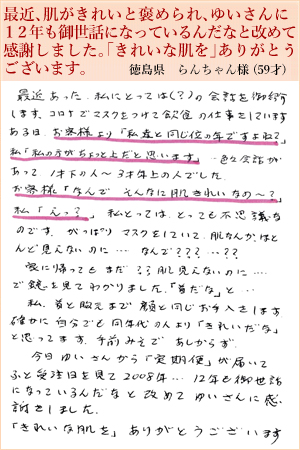 最近、肌がきれいと褒められ、ゆいさんに
12年も御世話になっているんだなと改めて
感謝しました。「きれいな肌を」ありがとう
ございます。
徳島県　らんちゃん様（59才）
最近あった、私にとっては(?)の会話を御紹介
します。コロナでマスクをつけて飲食の仕事をしています
ある日、お客様より「私達と同じ位の年ですよね?」
私「私の方がちょっと上だと思います」…色々会話が
あって、1才下の人～3才年上の人でした。
お客様「なんで　そんなに肌きれいなの～?」
私「えっ?」私にとっては、とっても不思議な
のです。がっぽり　マスクをしていて、肌なんかほと
んど見えないのに…なんで???…??
家に帰ってもまだ??肌見えないのに…
で鏡を見てわかりました。「首だな」と…
私、首と胸元まで顔と同じお手入をします
確かに自分でも同年代の人より「きれいだな」
と思ってます。手前みそで　あしからず。
今日ゆいさんから「定期便」が届いて
ふと受注日を見て2008年…12年も御世話
になっているんだなと改めてゆいさんに感
謝をしました。
「きれいな肌を」ありがとうございます